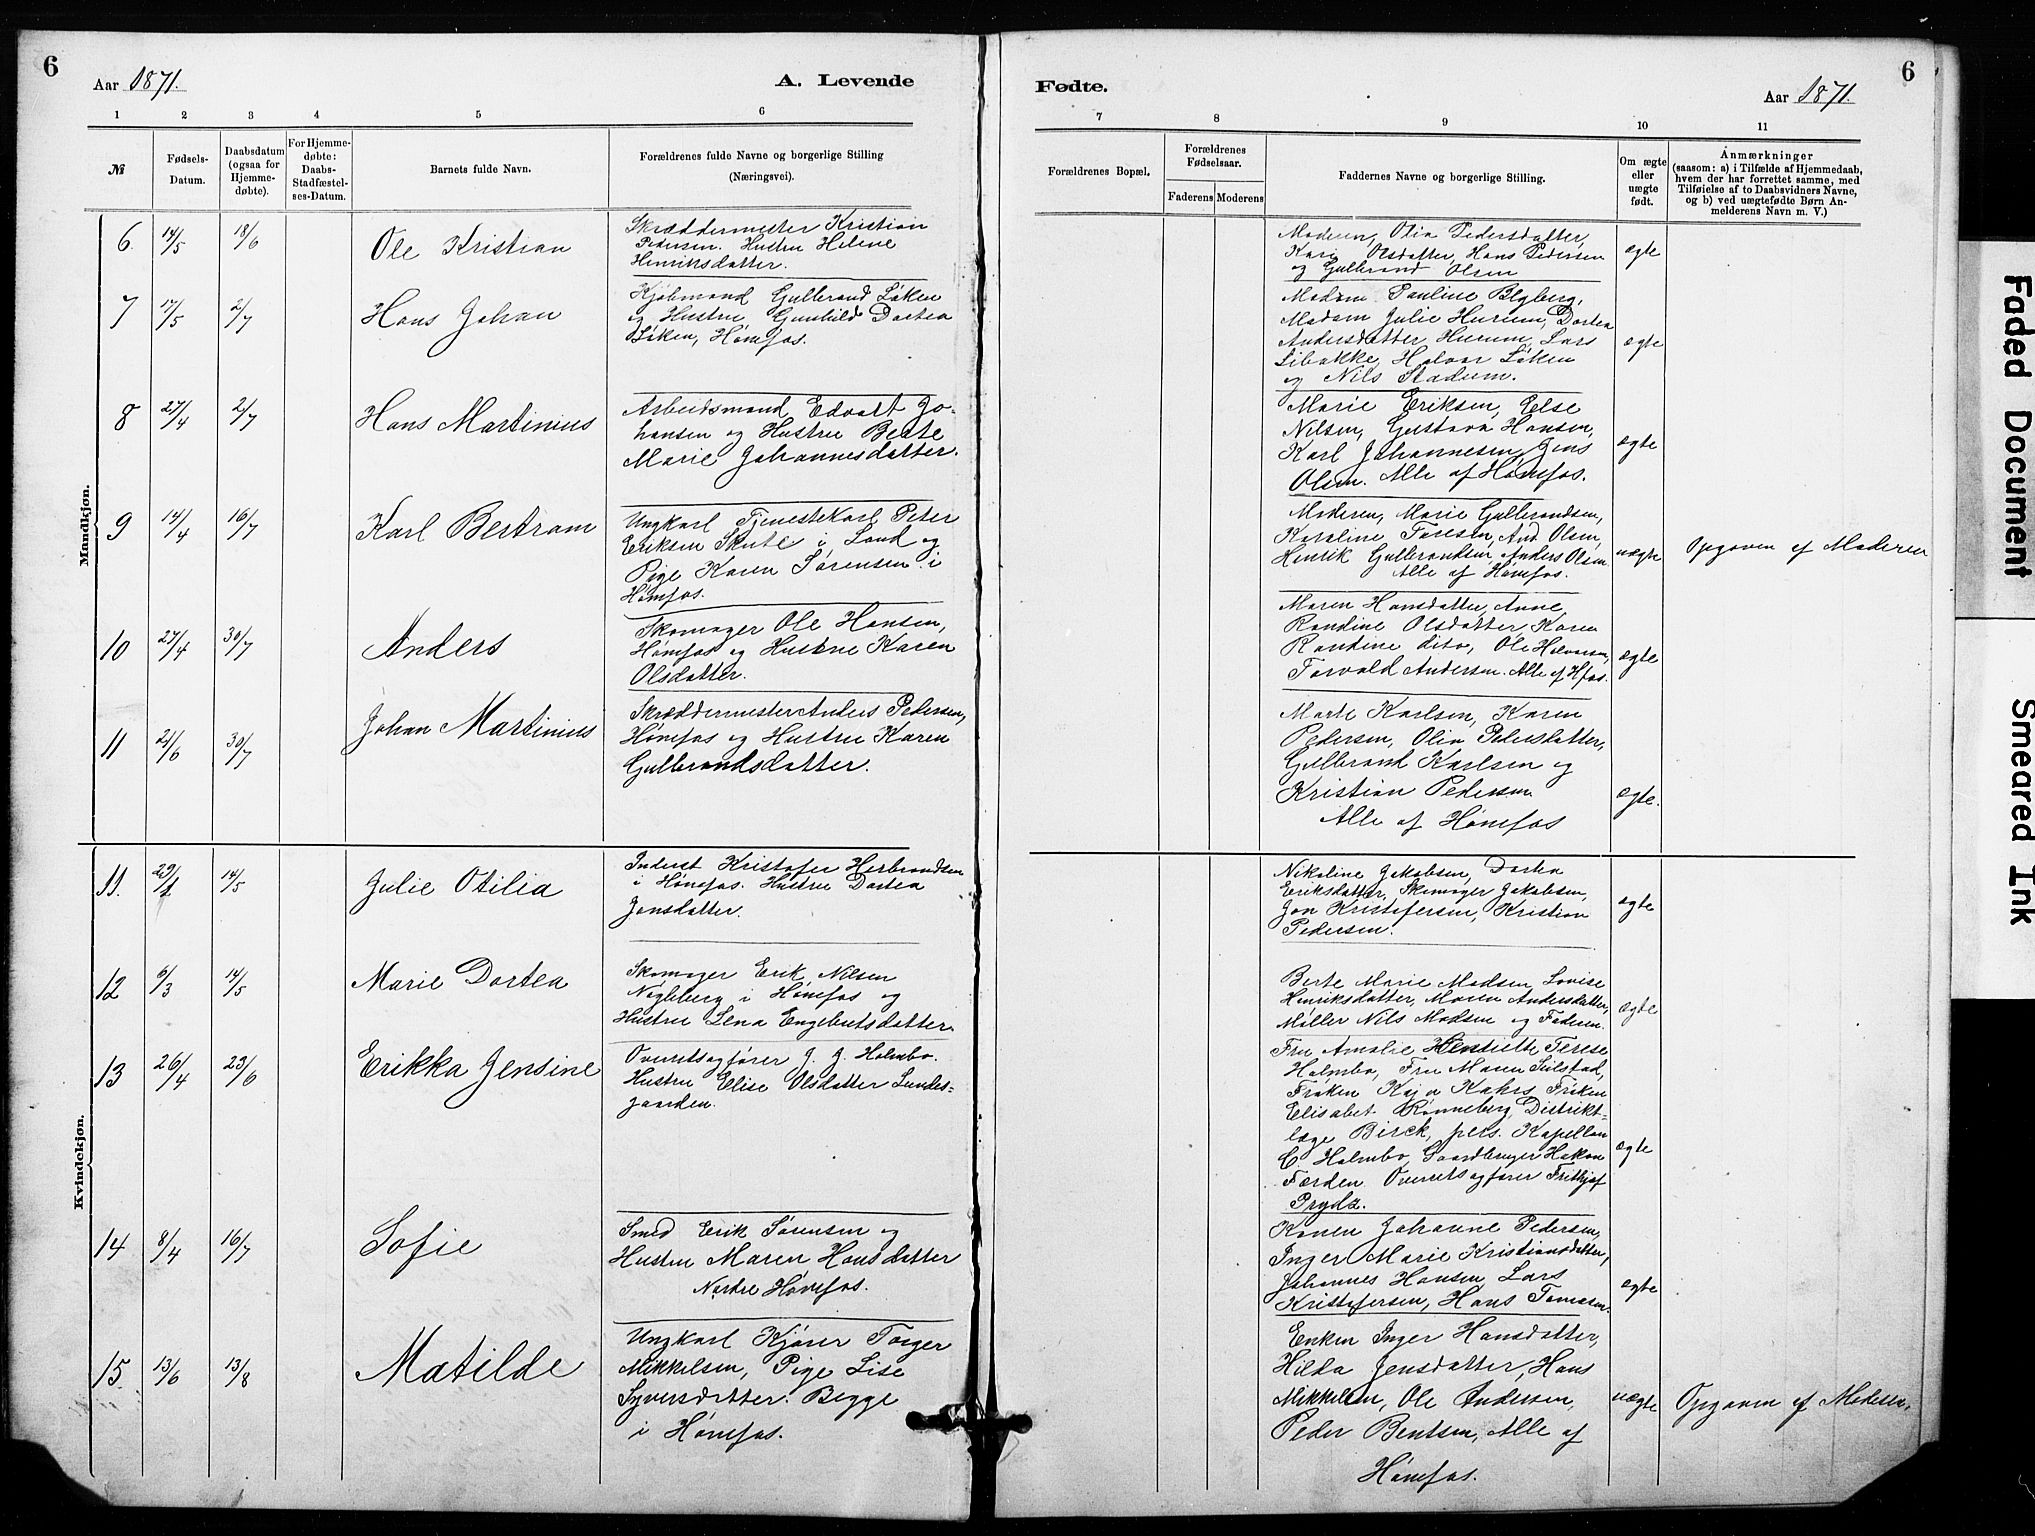 6
Aar 1871.
A. Levende
Fødte.
Aar 1871.
6
1 2 3 4 5 6 7 8 9 10 11
№
Fødsels-
Datum.
Daabsdatum
(ogsaa for
Hjemme-
døbte).
For Hjemme-
døbte:
Daabs-
Stadfæstel-
ses-Datum.
Barnets fulde Navn.
Forældrenes fulde Navne og borgerlige Stilling
(Næringsvei).
Forældrenes Bopæl.
Forældrenes
Fødselsaar.
Faderens Moderens
Faddernes Navne og borgerlige Stilling.
Om ægte
eller
uægte
født.
Anmærkninger
(saasom: a) i Tilfælde af Hjemmedaab,
hvem der har forrettet samme, med
Tilføielse af to Daabsvidners Navne,
og b) ved uægtefødte Børn An-
melderens Navn m. V.)
Mandkjøn.
6. 14/5 18/6 Ole Kristian
Skræddermester Kristian
Pedersen. Hustru Helene
Henriksdatter.
Moderen, Olia Pedersdatter,
Kari Olsdatter, Hans Pedersen
og Gulbrand Olsen
ægte
7 17/5 2/7 Hans Johan
Kjøbmand Gulbrand Løken
og Hustru Gunhild Dortea
Løken, Hønefos.
Madam Pauline Blyberg,
Madam Julie Hurum, Dortea
Andersdatter Hurum, Lars
Libakke, Halvor Løken
og Nils Stadum.
ægte
8 27/4 2/7 Hans Martinius
Arbeidsmand Edvart Jo-
hansen og Hustru Berte
Marie Johannesdatter.
Marie Eriksen, Else
Nilsen, Gustava Hansen,
Karl Johannesen, Jens
Olsen. Alle af Hønefos.
ægte
9 14/4 16/7 Karl Bertram
Ungkarl Tjenestekarl Peter
Eriksen Skute i Land og
Pige Karen Sørensen i
Hønefos.
Moderen, Marie Gulbrandsen,
Karoline Toresen, And Olsen,
Henrik Gulbrandsen, Anders Olsen
Alle af Hønefos.
uægte
Opgaven af Moderen
10 27/4 30/7 Anders
Skomager Ole Hansen,
Hønefos og Hustru Karen
Olsdatter.
Maren Hansdatter, Anne
Randine Olsdatter, Karen
Randine dito, Ole Halvorsen,
Torvald Andersen. Alle af Hfos.
ægte
11 21/6 30/7 Johan Martinius
Skræddermester Anders Pedersen,
Hønefos og Hustru Karen
Gulbrandsdatter.
Marte Karlsen, Karen
Pedersen, Olia Pedersdatter,
Gulbrand Karlsen og
Kristian Pedersen
Alle af Hønefos
ægte.
Kvindekjøn.
11. 14/5 Julie Otilia
Inderst Kristofer Herbrandsen
i Hønefos. Hustru Dortea
Jonsdatter.
Nikoline Jakobsen, Dortea
Eriksdatter, Skomager Jakobsen,
Jon Kristofersen, Kristian
Pedersen.
ægte
12 6/3 14/5 Marie Dortea
Skomager Erik Nilsen
Nøgleberg i Hønefos og
Hustru Lena Engebretsdatter
Berte Marie Madsen, Lovise
Henriksdatter, Maren Andersdatter,
Møller Nils Madsen og Faderen.
ægte
13 26/4 23/6 Erikka Jensine
Overretssagfører J. J. Holmbo.
Hustru Elise Olsdatter Lundes-
gaarden.
Fru Amalie Henriette Terese
Holmbo, Fru Maren Seilstad,
Frøken Kaja Kahrs, Frøken
Elisabet Rønneberg, Distrikt-
læge Birck, pers. Kapellan
C. Holmbo, Gaardbruger Hakon
Færden Overretssagfører Frithjof
Prydz.
ægte
14 8/4 16/7 Sofie
Smed Erik Sørensen og
Hustru Maren Hansdatter
Nordre Hønefos.
Konen Johanne Pedersen,
Inger Marie Kristiansdatter,
Johannes Hansen, Lars
Kristofersen, Hans Tomesen.
ægte
15 13/6 13/8 Matilde
Ungkarl Kjører Torger
Mikkelsen, Pige Lise
Syversdatter. Begge
i Hønefos.
Enken Inger Hansdatter,
Hilda Jensdatter, Hans
Mikkelsen, Ole Andersen,
Peder Bentsen, Alle af
Hønefos.
uægte
Opgaven af Moderen.
Faded Document
Smeared Ink